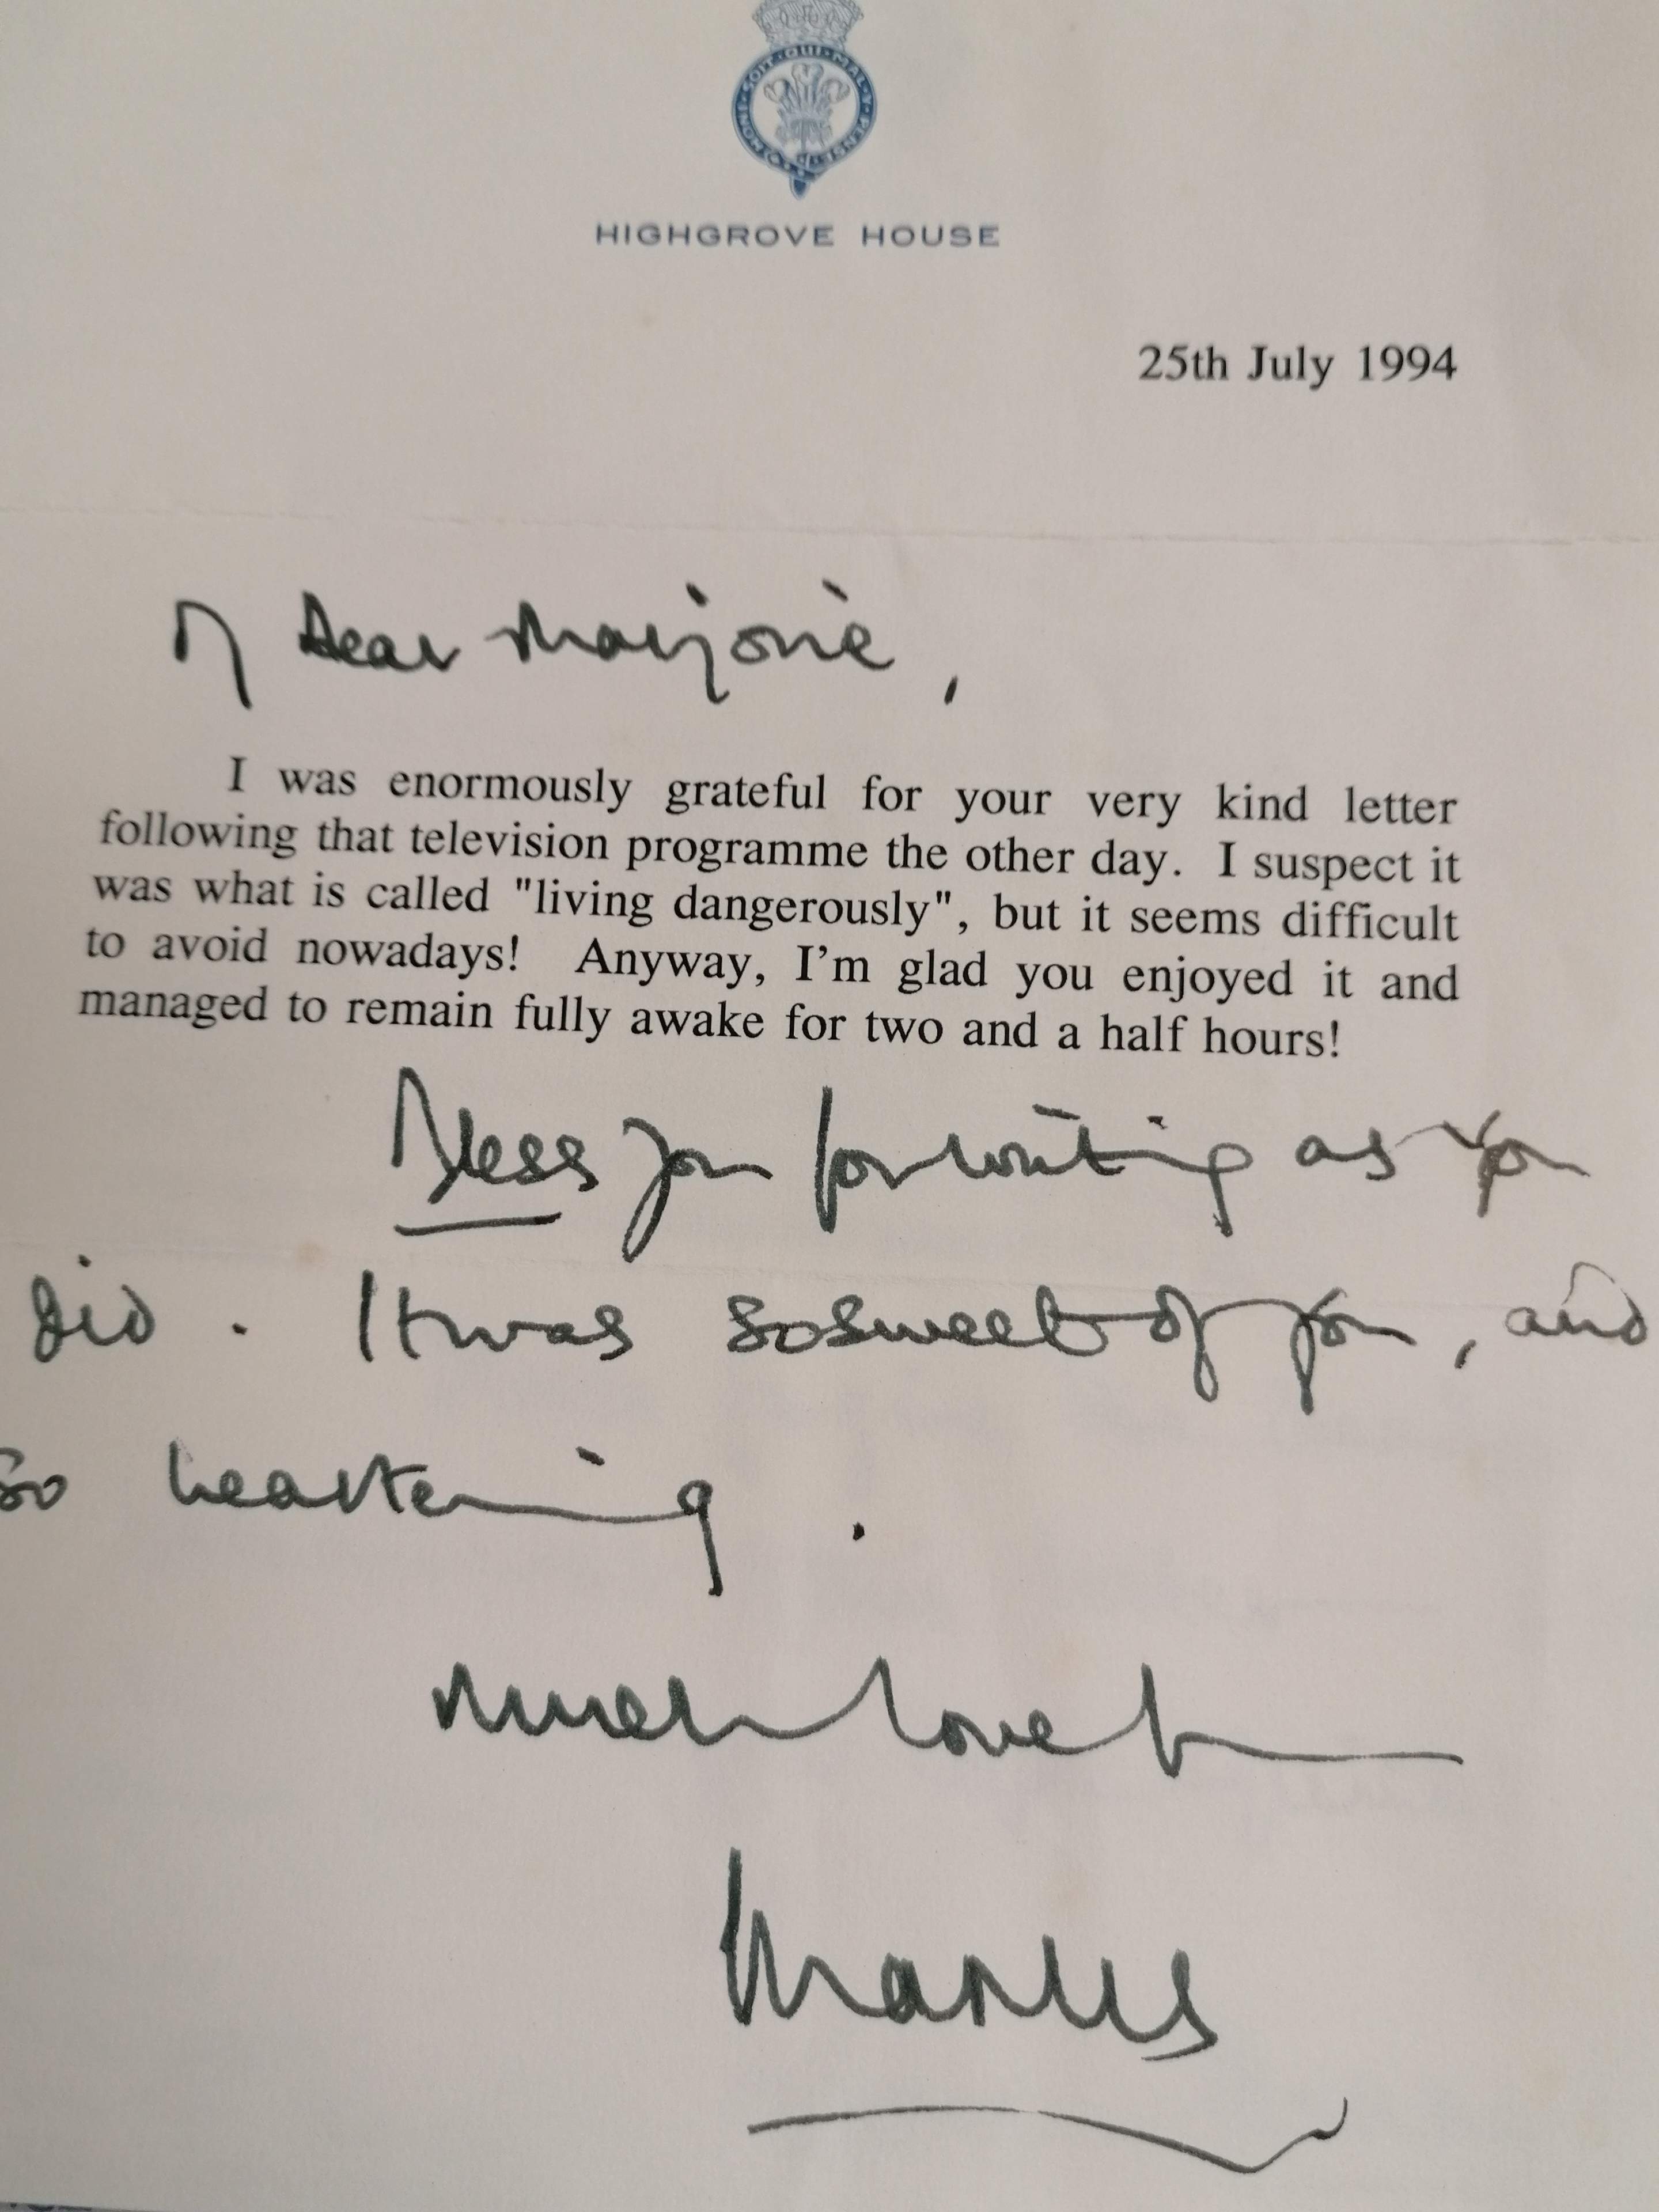 HONI·SOIT·QUI·MAL·Y·PENSE
HIGHGROVE HOUSE
25th July 1994
My Dear Marjorie,
I was enormously grateful for your very kind letter
following that television programme the other day. I suspect it
was what is called "living dangerously", but it seems difficult
to avoid nowadays! Anyway, I'm glad you enjoyed it and
managed to remain fully awake for two and a half hours!
Bless you for writing as you
did. It was so sweet of you, and
so heartening.
Much love from
Charles